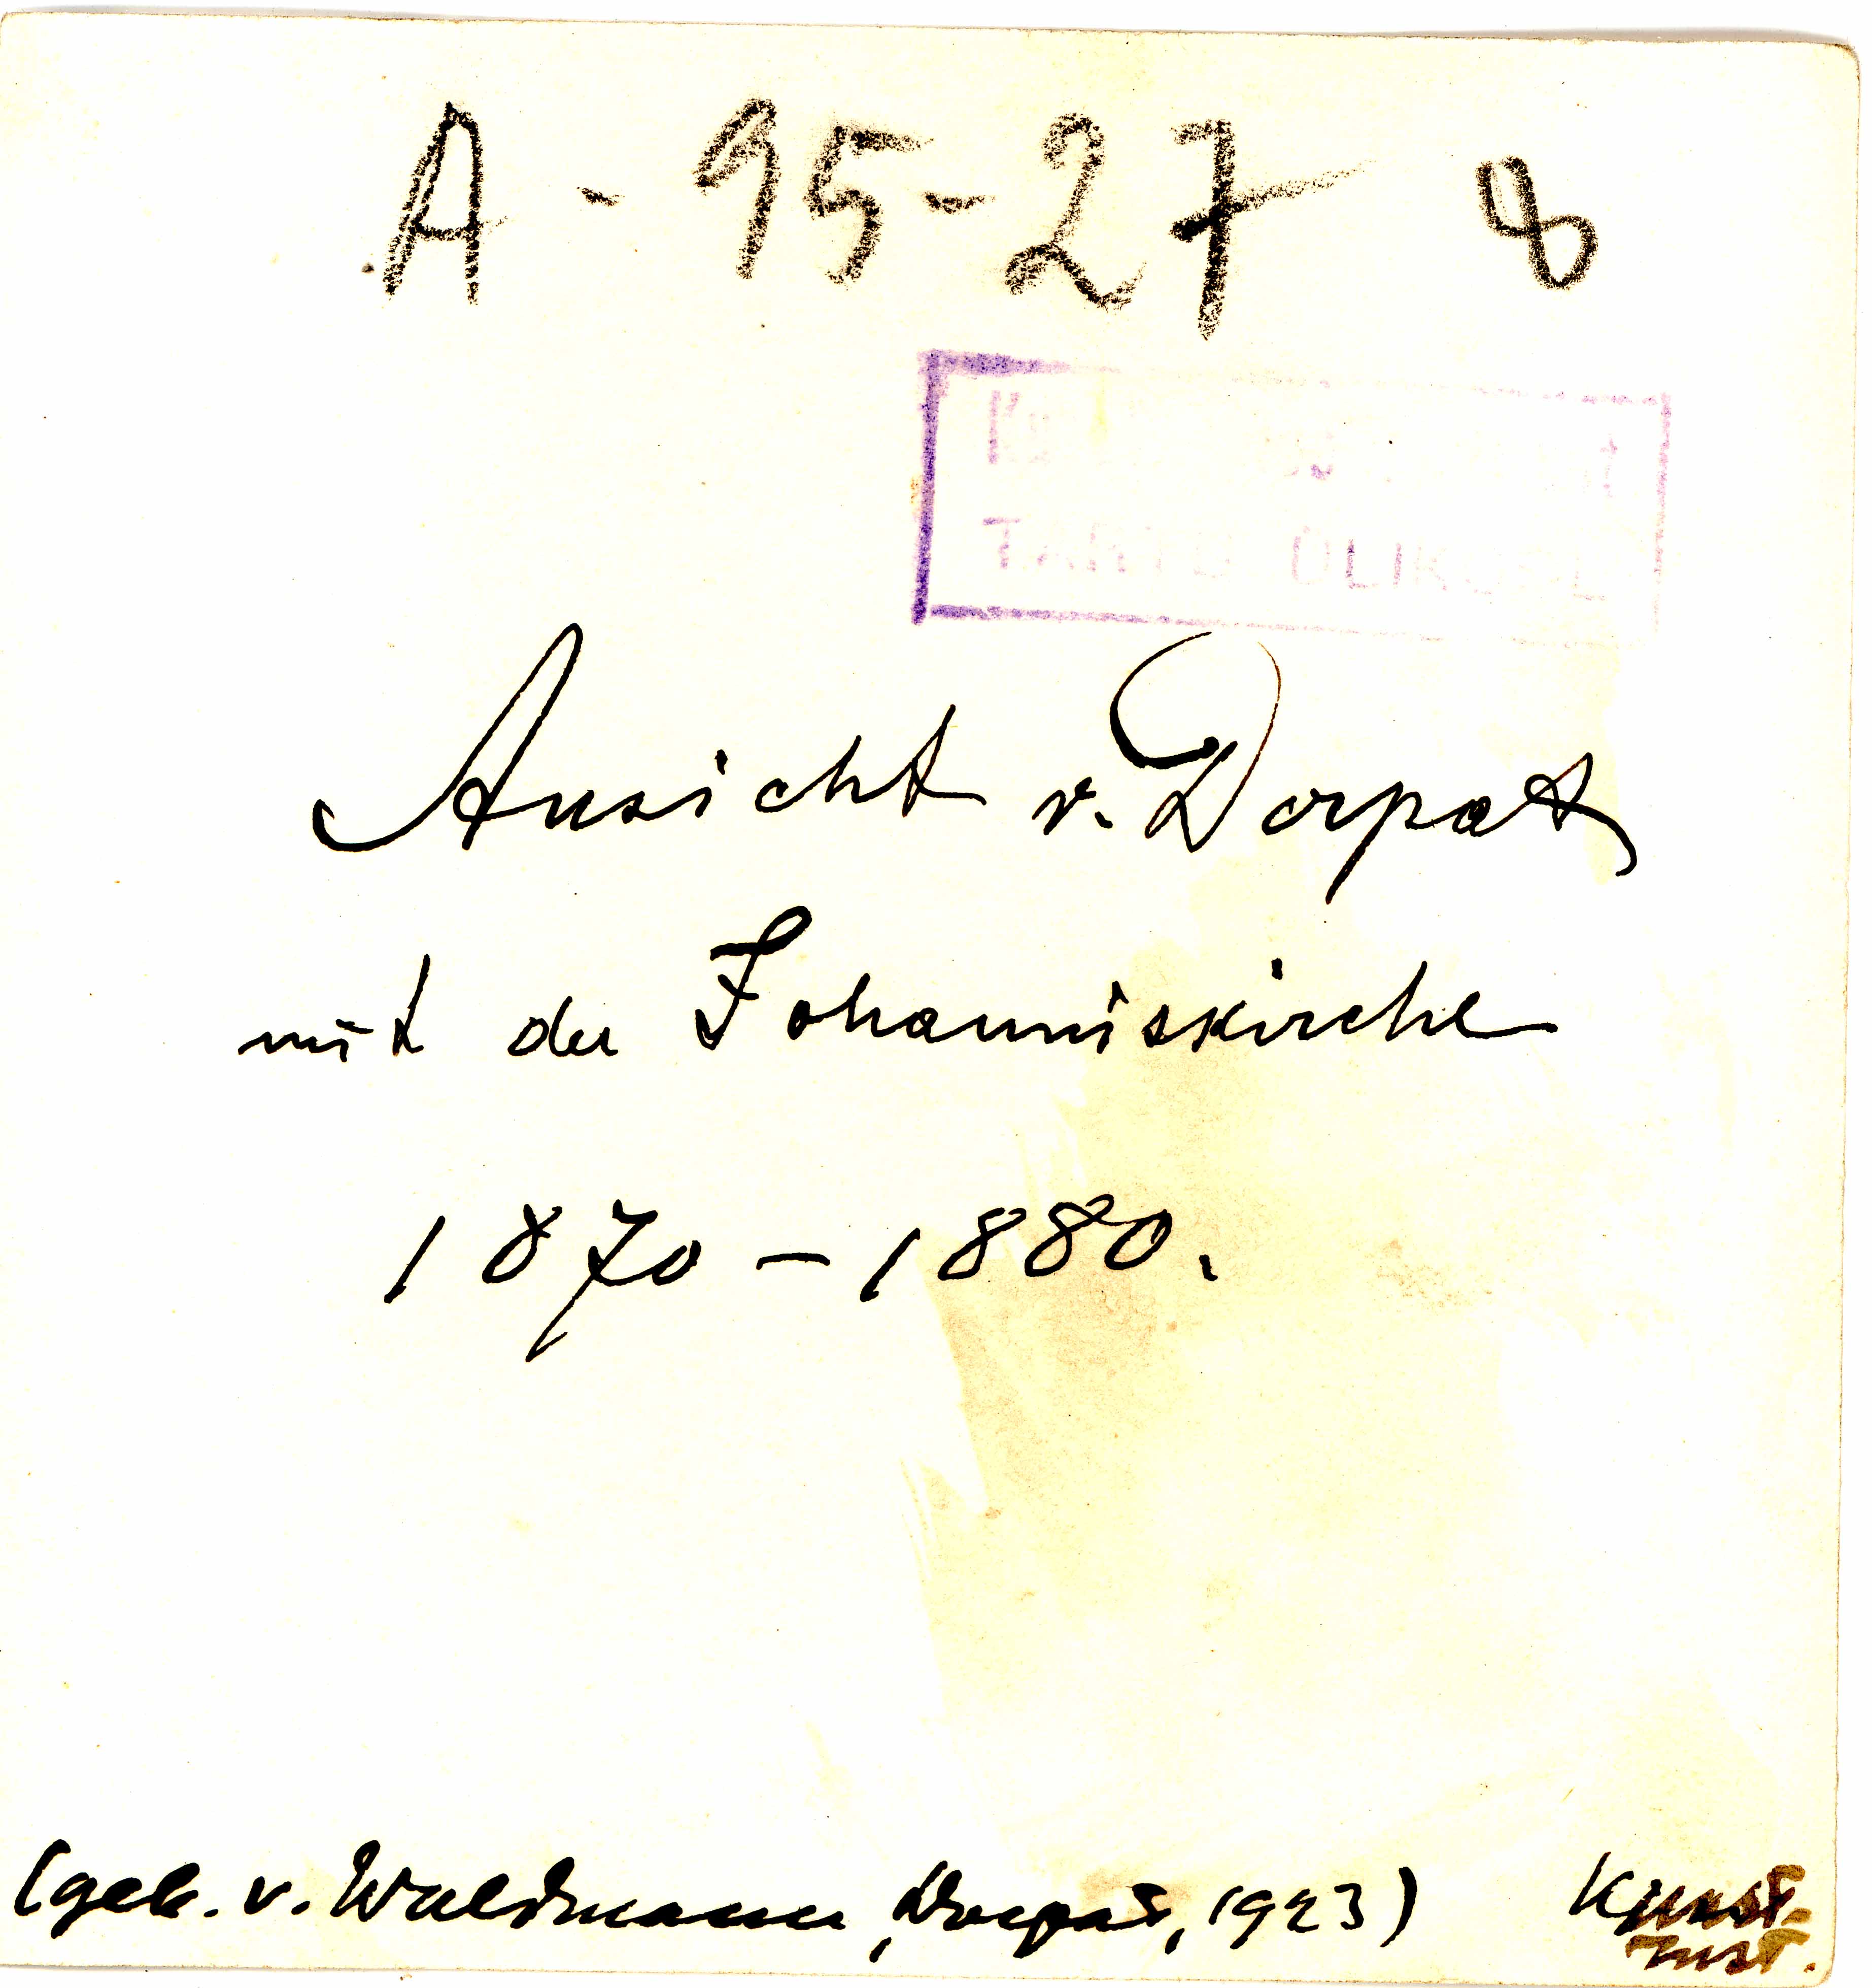 A - 95-27 8
TARTU ÜLIKOOL
Ansicht v. Dorpat
mit der Johanniskirche
1870-1880.
(geb. v. Waldmann, Dorpat, 1923)
Kunst-
Inst.